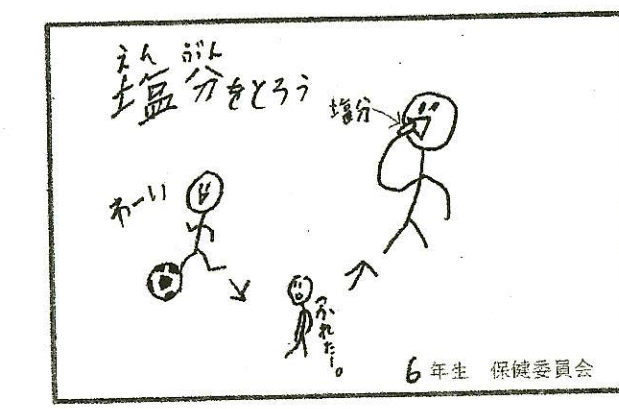 えん ぶん
塩分をとろう
塩分
わーい
つかれたー。
6年生 保健委員会